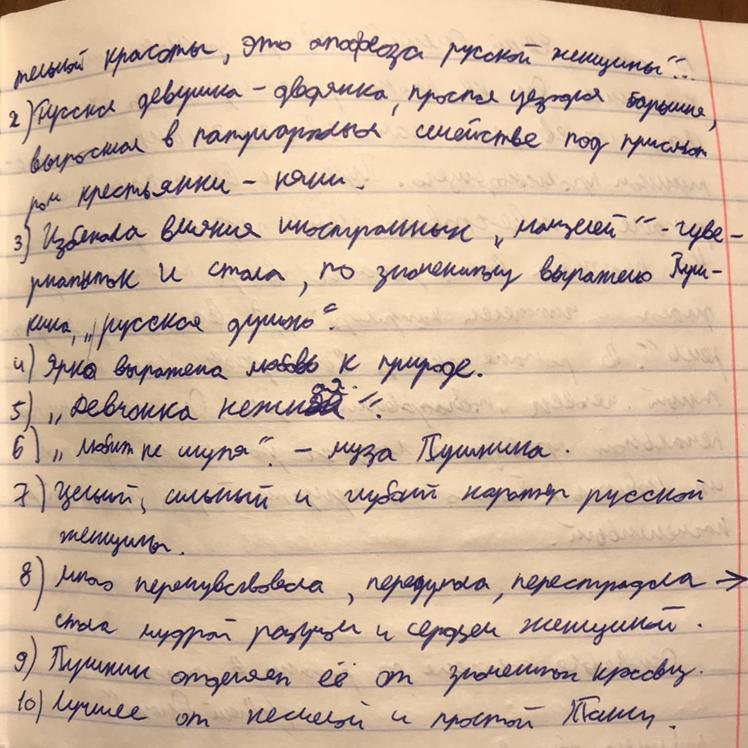 тельной красоты, это апофеоза русской женщины"...
2) Русская девушка - дворянка, простая уездная барышня,
выросшая в патриархальн семействе под присмот
ром крестьянки - няни.
3) Избежала влияния иностранных „мамзелей" - гуве-
рнанток и стала, по знаменитому выражению Пуш-
кина, „русская душою".
4) Ярко выражена любовь к природе.
5) „Девчонка нежная".
6) „Любит не шутя". - муза Пушкина.
7) Цельный, сильный и глубокий характер русской
женщины.
8) Много перечувствовала, передумала, перестрадала →
стала мудрой разумом и сердцем женщиной.
9) Пушкин отделяет её от знаменитых красавиц.
10) Лучшее от несмелой и простой Тани.